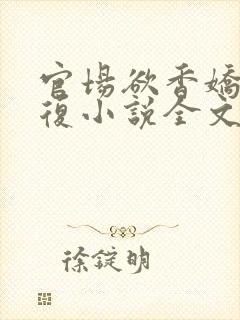 官场欲香嬌
復小說全文
徐錠明